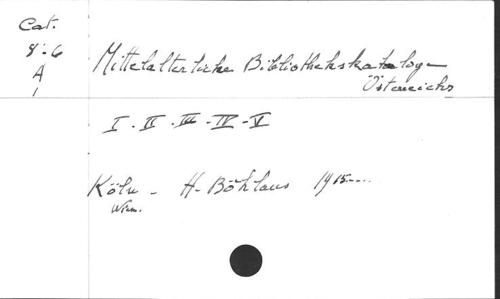 Cat.
8°-6
A
1
Mittelalterliche Bibliothekskataloge
Österreichs
I - II - III - IV - V
Köln - H. Böhlaus 1915....
Wien.